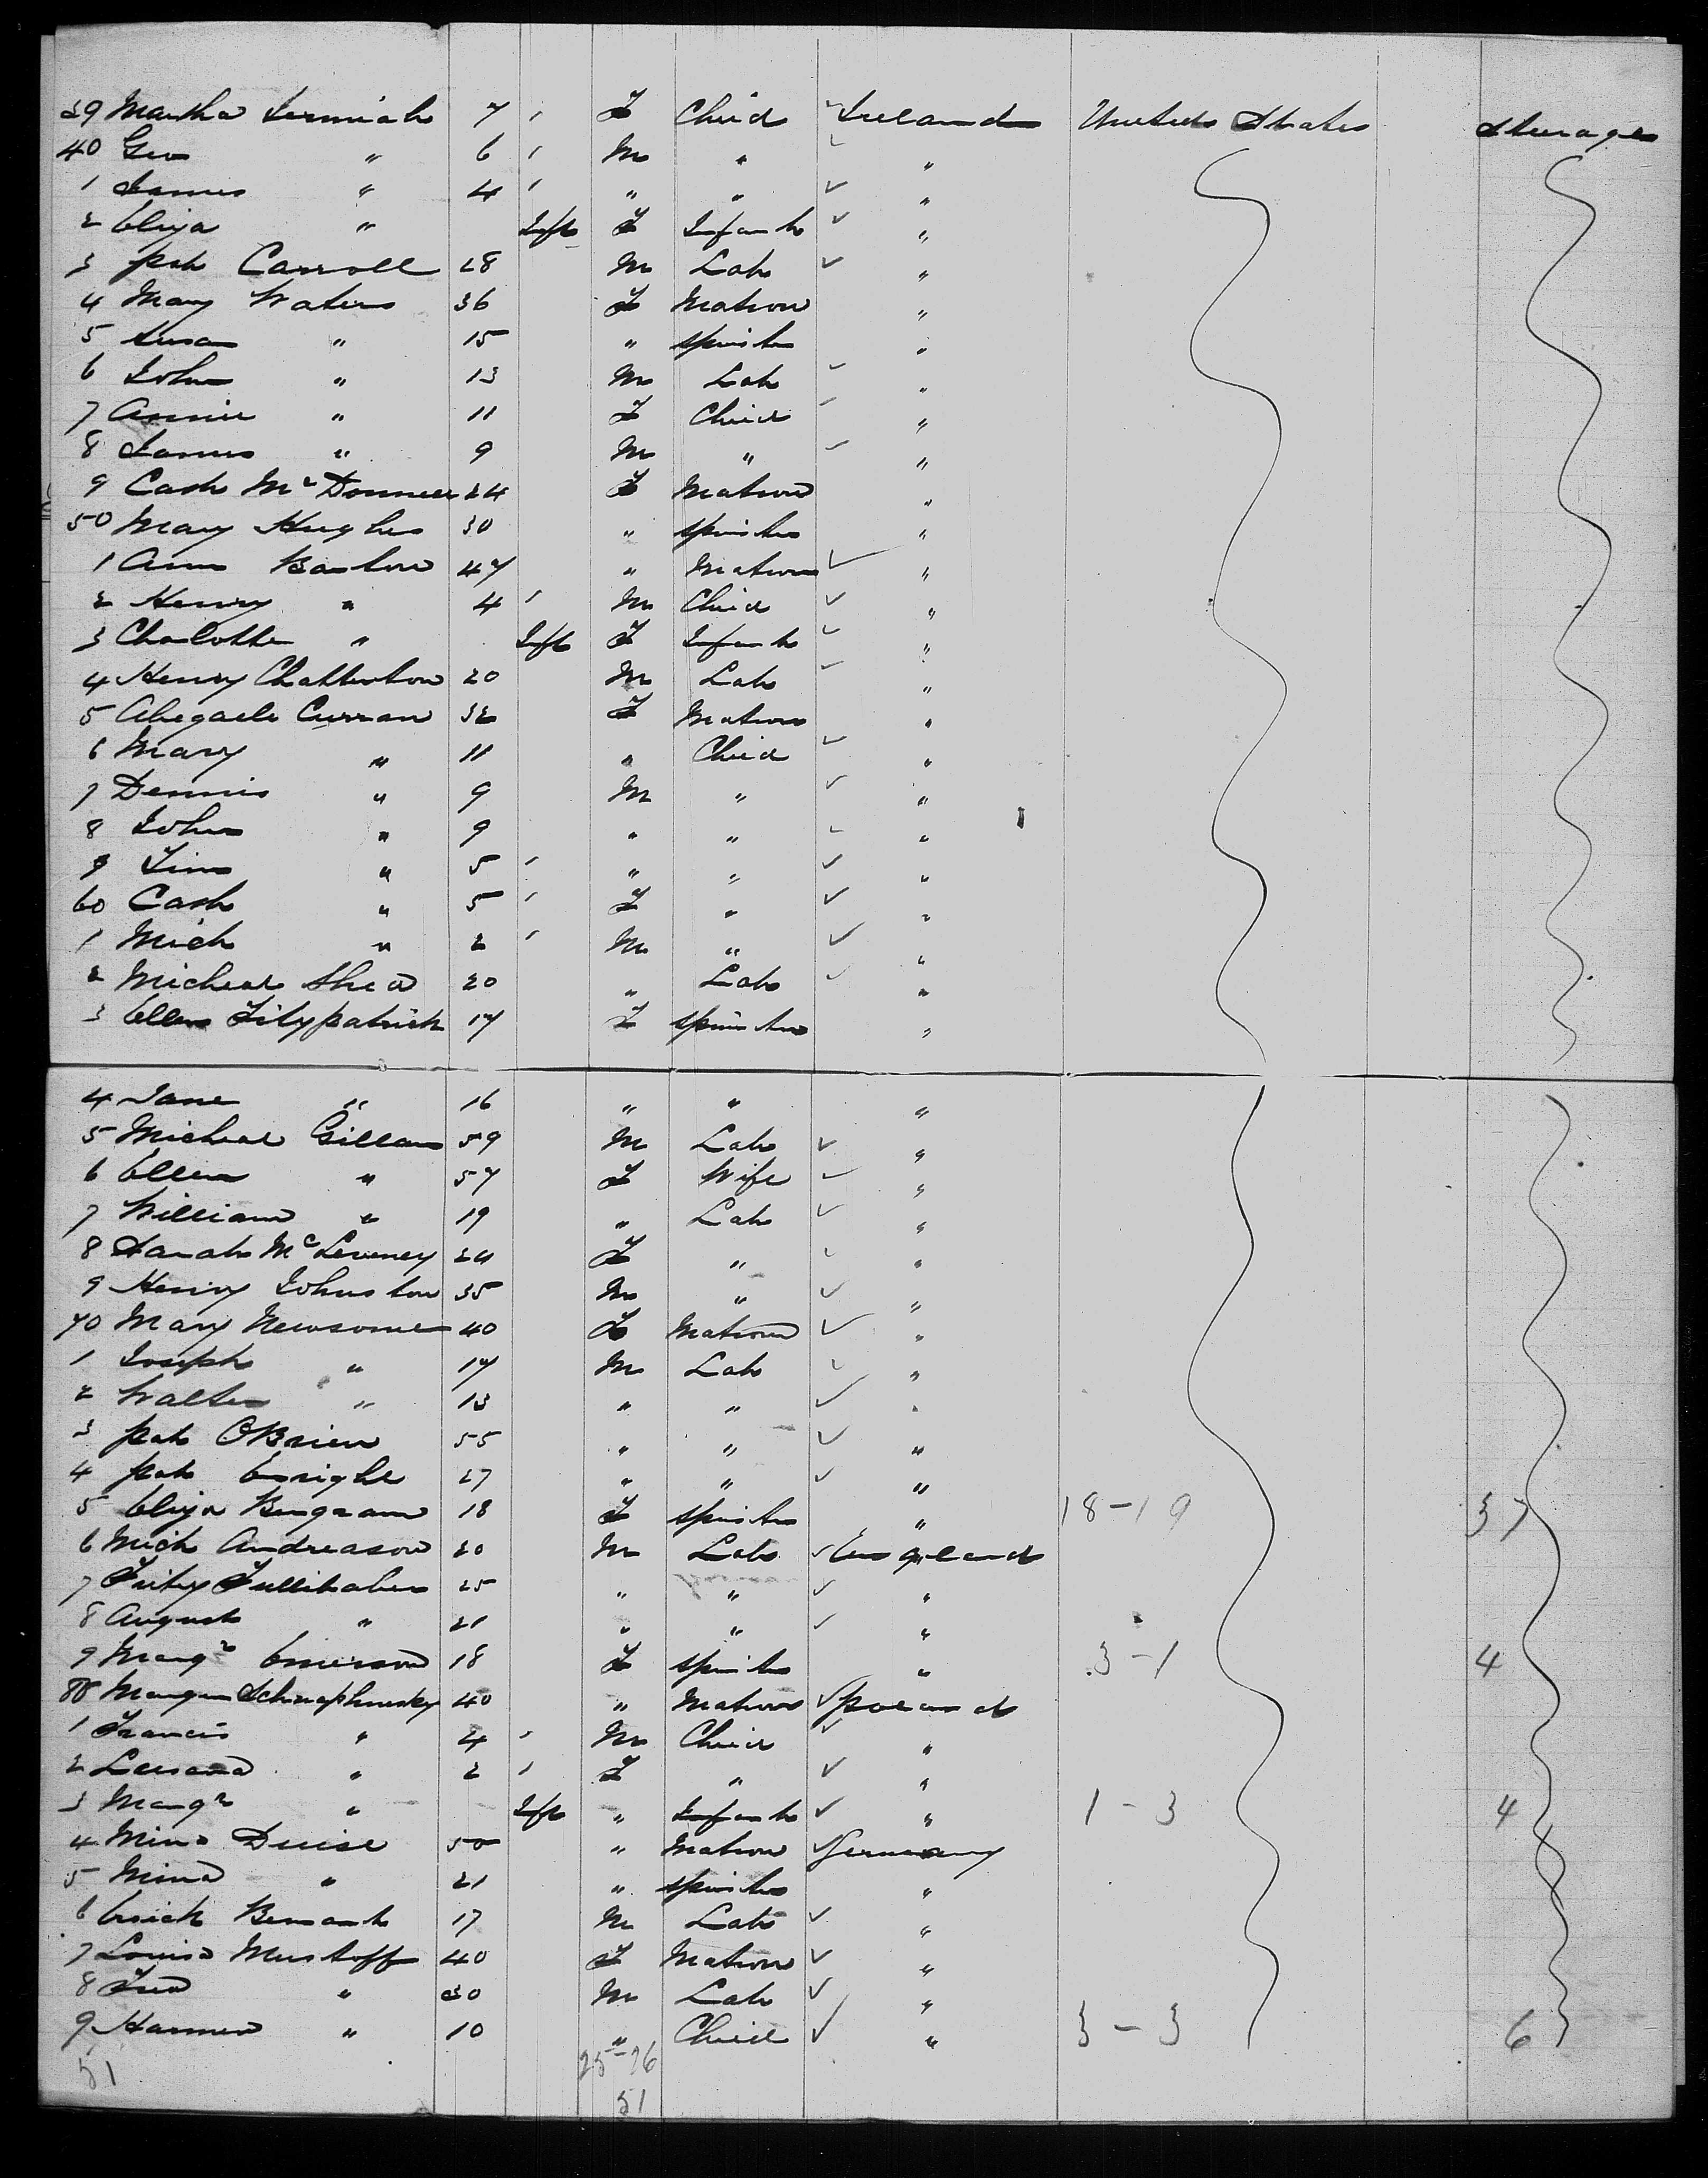 39 Martha Jermiah 7 ' F Child ✓ Ireland United States Steerage
40 Geo " 6 ' M " ✓ "
1 James " 4 ' " " ✓ "
2 Eliza " Inft F Infant ✓ "
3 Pat Carroll 28 M Lab ✓ "
4 Mary Waters 36 F Matron "
5 Susan " 15 " Spinster "
6 John " 13 M Lab ✓ "
7 Annie " 11 F Child ✓ "
8 James " 9 M " ✓ "
9 Cath McDonnell 24 F Matron "
50 Mary Hughes 30 " Spinster "
1 Ann Barlow 47 " Matron ✓ "
2 Henry " 4 ' M Child ✓ "
3 Charlotte " Inft F Infant ✓ "
4 Henry Chatterton 20 M Lab ✓ "
5 Abegaele Curran 32 F Matron "
6 Mary " 11 " Child ✓ "
7 Dennis " 9 M " ✓ "
8 John " 9 " " ✓ "
9 Tim " 5 ' " " ✓ "
60 Cath " 5 ' F " ✓ "
1 Mich " 2 ' M " ✓ "
2 Micheal Shea 20 " Lab ✓ "
3 Ellen Fitzpatrick 17 F Spinster "
4 Jane " 16 " " "
5 Micheal Gillan 59 M Lab ✓ "
6 Ellen " 57 F Wife ✓ "
7 William " 19 " Lab ✓ "
8 Sarah Mc 24 F " ✓ "
9 Henry Johnston 35 M " ✓ "
70 Mary Newsome 40 F Matron ✓ "
1 Joseph " 17 M Lab ✓ "
2 Walter " 13 " " ✓ "
3 Pat OBrien 55 " " ✓ "
4 Pat Enright 27 " " ✓ "
5 Eliza Bingram 18 F Spinster " 18-19 37
6 Mich Andreason 20 M Lab ✓ England
7 Fritz 25 " " ✓ "
8 August " 21 " " ✓ "
9 Margt Emerson 18 F Spinster " 3-1 4
80 40 " Matron ✓ Poland
1 Francis " 4 ' M Child ✓ "
2 " 2 ' F " ✓ "
3 Margt " Inft " Infant ✓ " 1-3 4
4 Mina 50 " Matron ✓ Germany
5 Mina " 21 " Spinster "
6 17 M Lab ✓ "
7 Louisa Mustoff 40 F Matron ✓ "
8 Fred " 30 M Lab ✓ "
9 " 10 " Child ✓ " 3-3 6
51 25-26
51